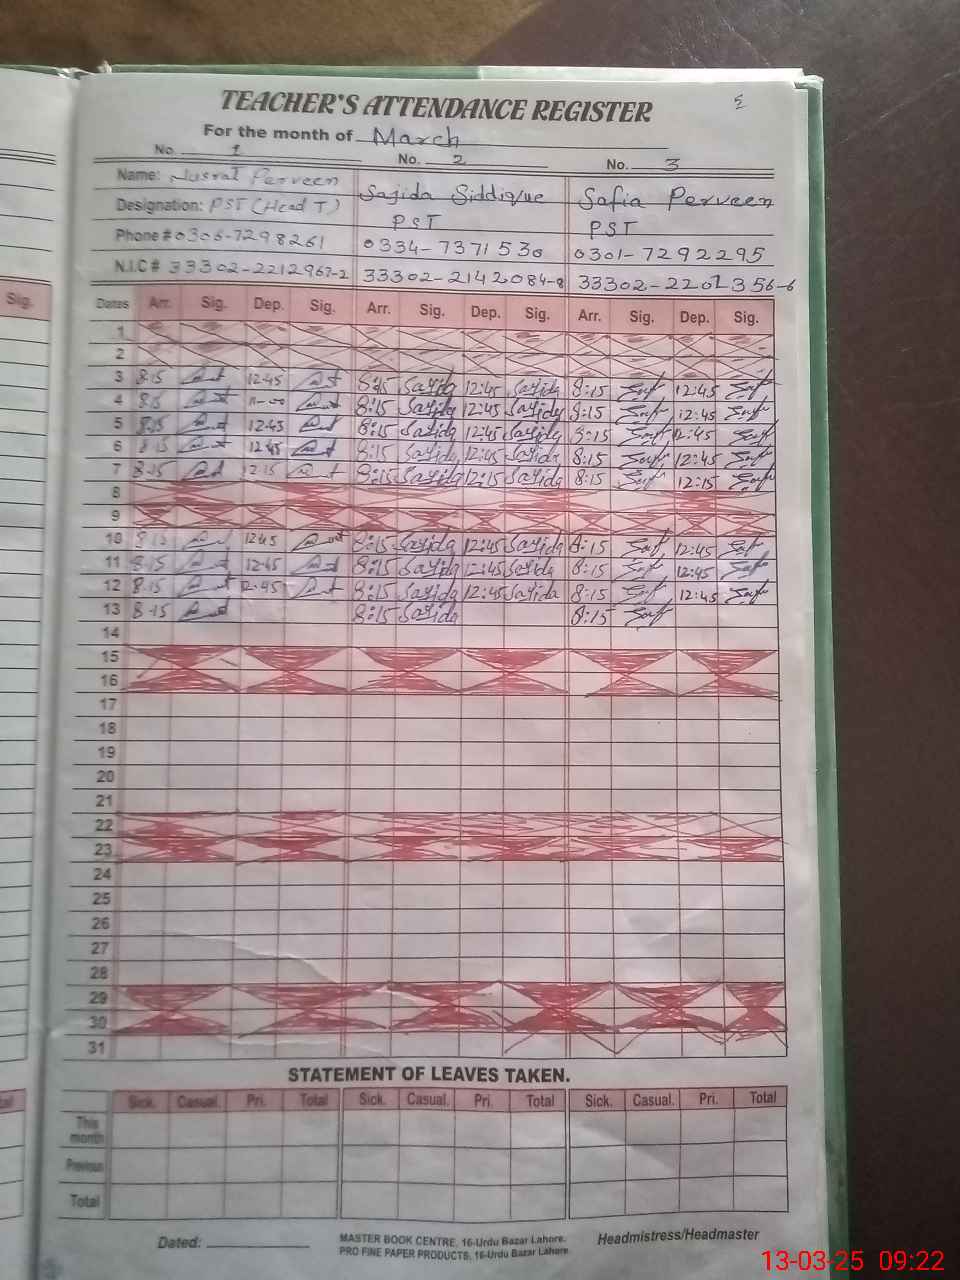 TEACHER'S ATTENDANCE REGISTER
For the month of March
No. 1 No. 2 No. 3
Name: Nusrat Perveen Sajida Siddique Safia Perveen
Designation: PST (Head T) PST PST
Phone # 0306-7298261 0334-7371530 0301-7292295
N.I.C # 33302-2212967-2 33302-2142084-8 33302-2201356-6
Sig. Dates Arr. Sig. Dep. Sig. Arr. Sig. Dep. Sig. Arr. Sig. Dep. Sig.
1
2
3 8:15 12:45 8:15 Sajida 12:45 Sajida 8:15 Saf 12:45 Saf
4 8:15 11-00 8:15 Sajida 12:45 Sajida 8:15 Saf 12:45 Saf
5 8:15 12:45 8:15 Sajida 12:45 Sajida 8:15 Saf 12:45 Saf
6 8:15 12:45 8:15 Sajida 12:45 Sajida 8:15 Saf 12:45 Saf
7 8:15 12:15 8:15 Sajida 12:15 Sajida 8:15 Saf 12:15 Saf
8
9
10 8:15 12:45 8:15 Sajida 12:45 Sajida 8:15 Saf 12:45 Saf
11 8:15 12:45 8:15 Sajida 12:45 Sajida 8:15 Saf 12:45 Saf
12 8:15 12:45 8:15 Sajida 12:45 Sajida 8:15 Saf 12:45 Saf
13 8-15 8:15 Sajida 8:15 Saf
14
15
16
17
18
19
20
21
22
23
24
25
26
27
28
29
30
31
STATEMENT OF LEAVES TAKEN.
Sick. Casual. Pri. Total Sick. Casual. Pri. Total Sick. Casual. Pri. Total
This month
Previous
Total
Dated: MASTER BOOK CENTRE, 16-Urdu Bazar Lahore. Headmistress/Headmaster
PRO FINE PAPER PRODUCTS, 16-Urdu Bazar Lahore.
13-03-25 09:22